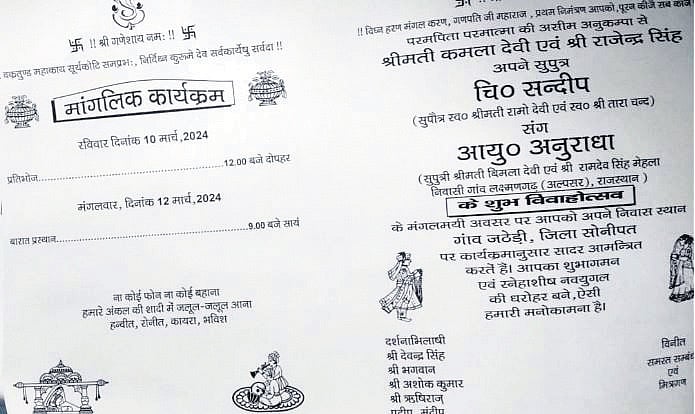 !! श्री गणेशाय नमः !!
वकतुण्ड महाकाय सूर्यकोटि समप्रभः, निर्विघ्न कुरूमे देव सर्वकार्येषु सर्वदा !!
मांगलिक कार्यक्रम
रविवार दिनांक 10 मार्च,2024
प्रतिभोज..........................................12.00 बजे दोपहर
मंगलवार, दिनांक 12 मार्च,2024
बारात प्रस्थान..........................................9.00 बजे सायं
ना कोई फोन ना कोई बहाना
हमारे अंकल की शादी में जलूल-जलूल आना
हन्वीत, रोनीत, कायरा, भविश
!! विघ्न हरण मंगल करण, गणपति जी महाराज , प्रथम निमंत्रण आपको,पूरन कीजै सब काज
परमपिता परमात्मा की असीम अनुकम्पा से
श्रीमती कमला देवी एवं श्री राजेन्द्र सिंह
अपने सुपुत्र
चि० सन्दीप
(सुपौत्र स्व० श्रीमती रामो देवी एवं स्व० श्री तारा चन्द)
संग
आयु० अनुराधा
(सुपुत्री श्रीमती बिमला देवी एवं श्री रामदेव सिंह मेहला
निवासी गांव लक्ष्मणगढ़ (अल्पसर), राजस्थान )
के शुभ विवाहोत्सव
के मंगलमयी अवसर पर आपको अपने निवास स्थान
गांव जटेड़ी, जिला सोनीपत
पर कार्यक्रमानुसार सादर आमन्त्रित
करते है। आपका शुभागमन
एवं स्नेहाशीष नवयुगल
की धरोहर बने,ऐसी
हमारी मनोकामना है।
दर्शनाभिलाषी
श्री देवन्द्र सिंह
श्री भगवान
श्री अशोक कुमार
श्री ऋषिराज
प्रदीप, मंदीप
विनीत
समस्त सम्बं
एवं
मित्रगण